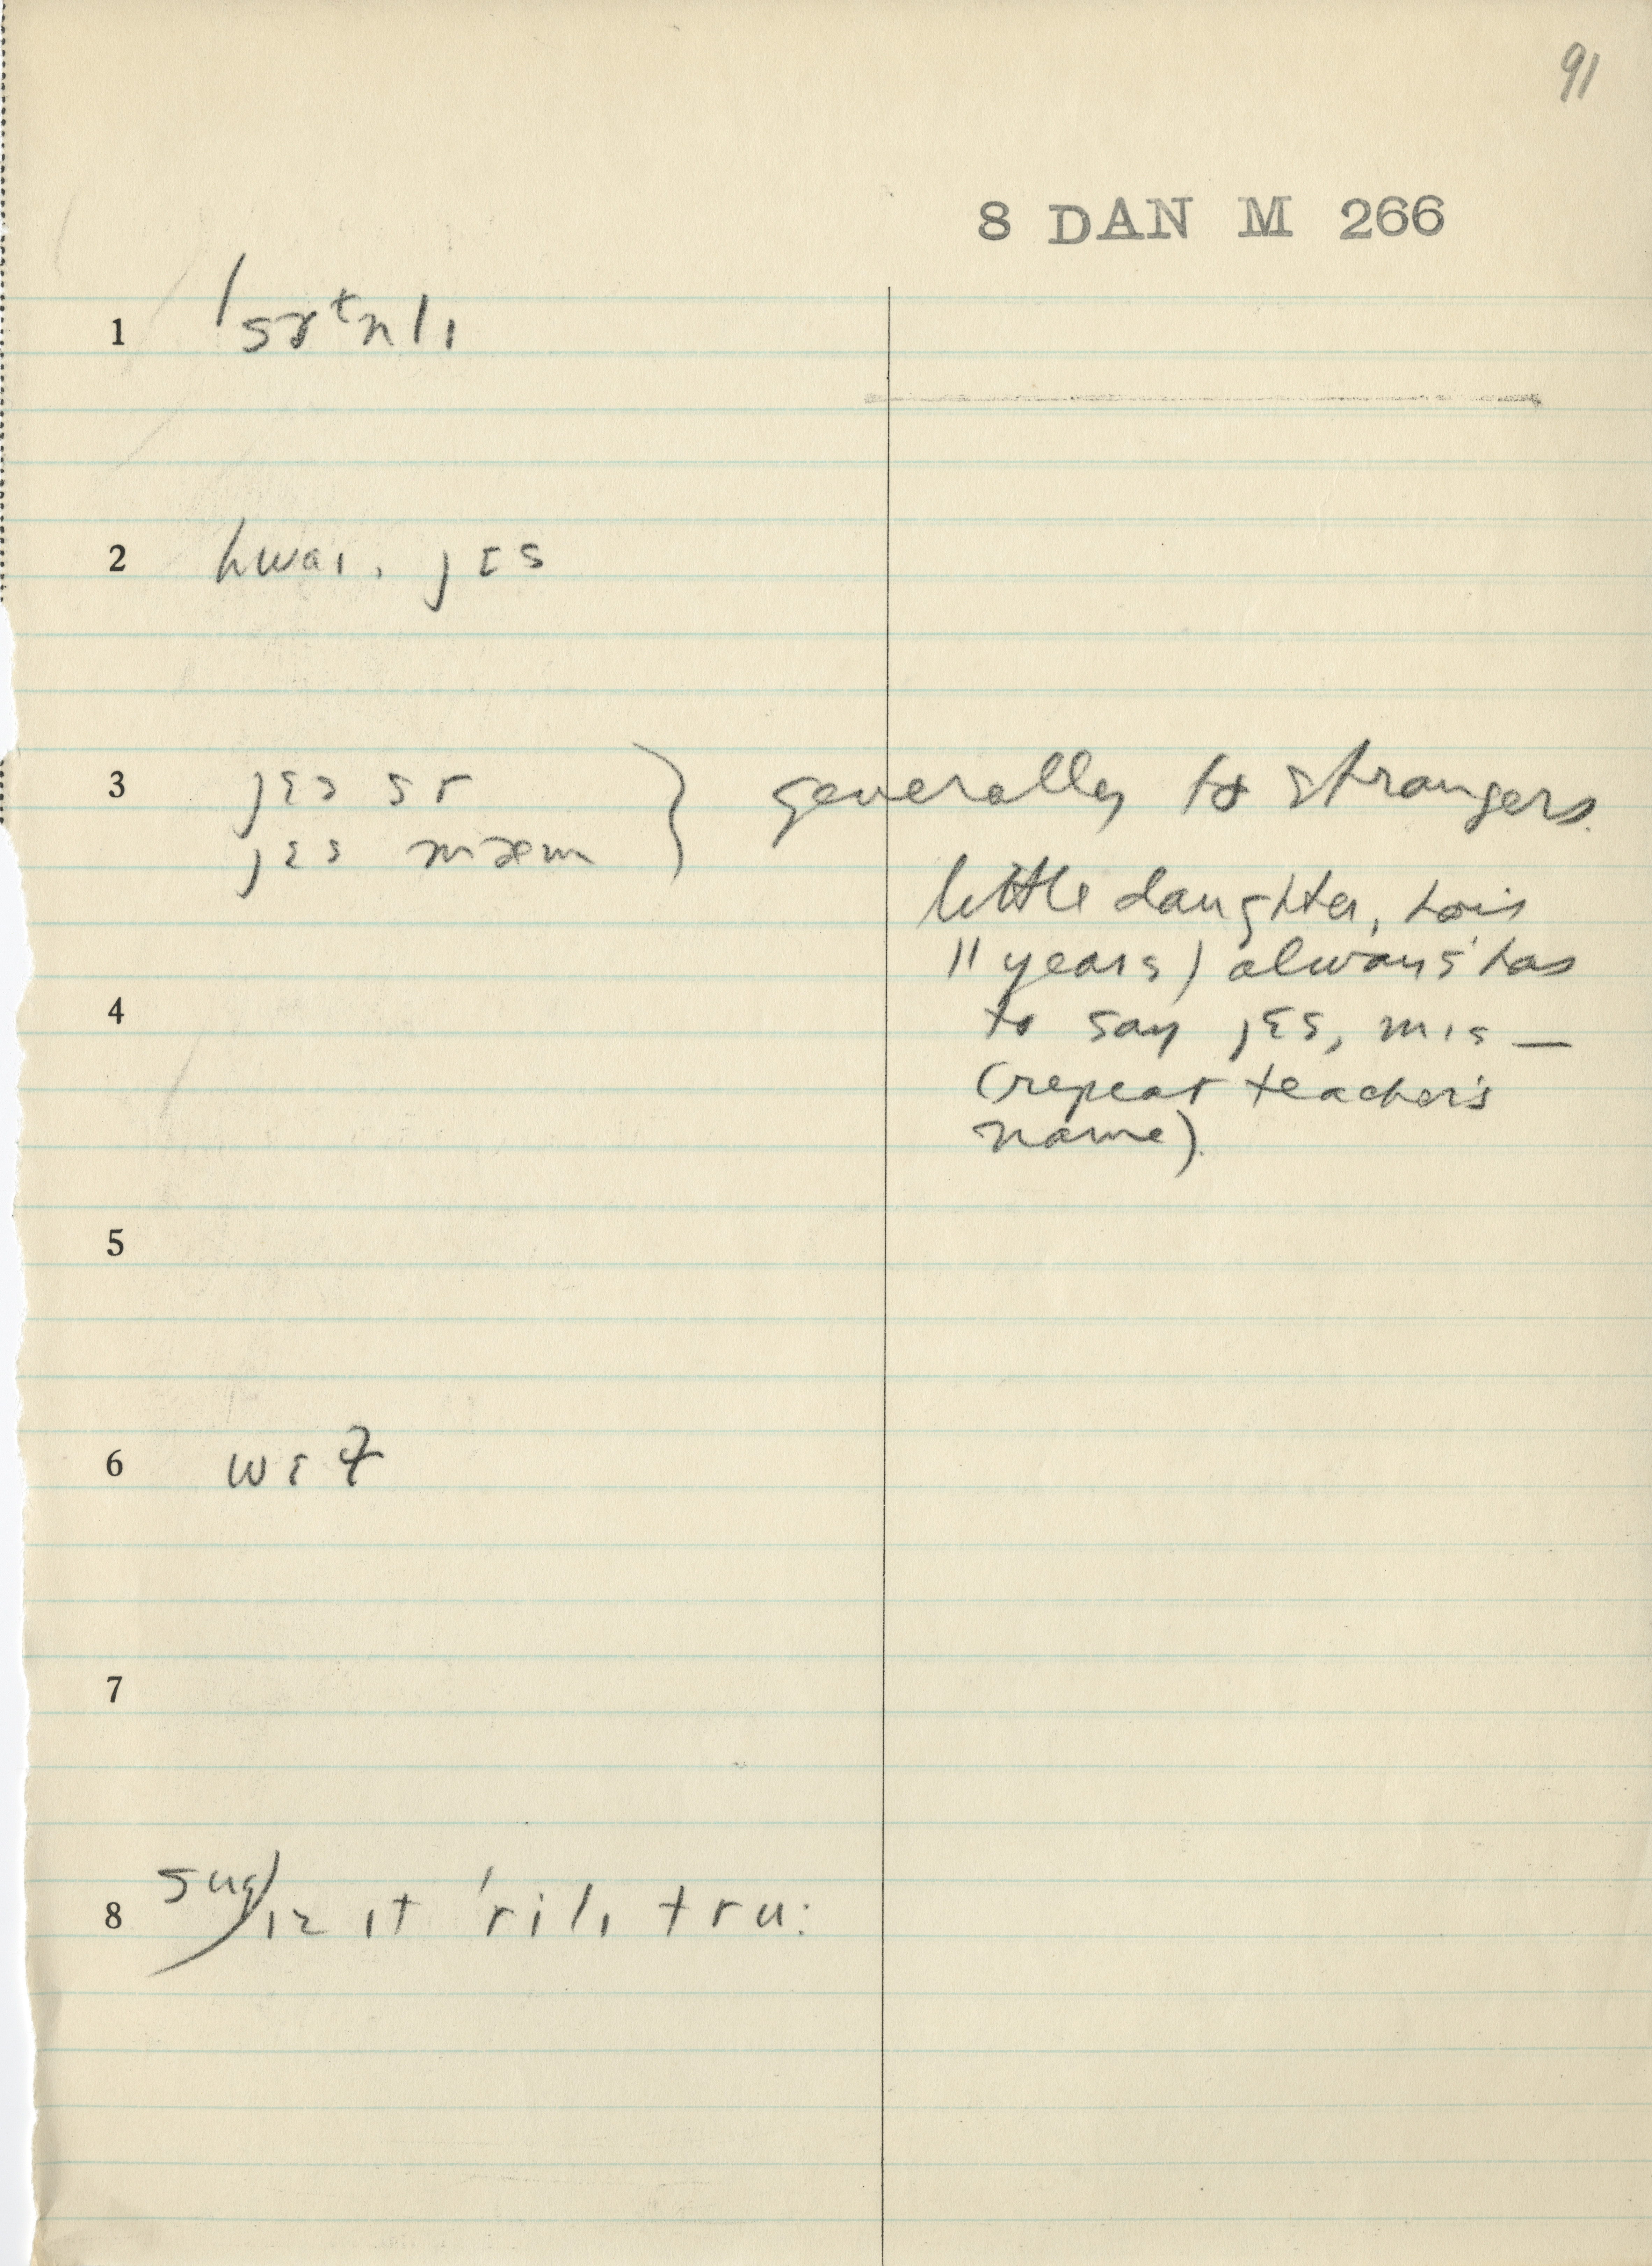 91
8 DAN M 266
1 ˈsɝᵗn lɪ
2 hwaɪ, jɛs
3 jɛs sr } generally to strangers.
jɛs mæm
little daughter, Lois
11 years) always has
4 to say jɛs, mɪs —
(repeat teacher's
name)
5
6
7
8 sug) ɪz ɪt ˈrilɪ tru: